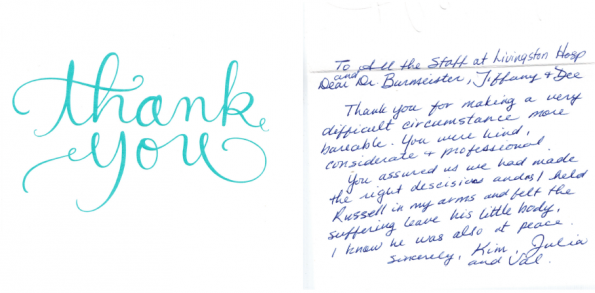 thank
you
To All the Staff at Livingston Hosp
and
Dear Dr. Burmeister, Tiffany & Dee
Thank you for making a very
difficult circumstance more
bareable. You were kind,
considerate & professional.
You assured us we had made
the right descisives and as I held
Russell in my arms and felt the
suffering leave his little body,
I know he was also at peace.
Sincerely, Kim, Julia
and Val.